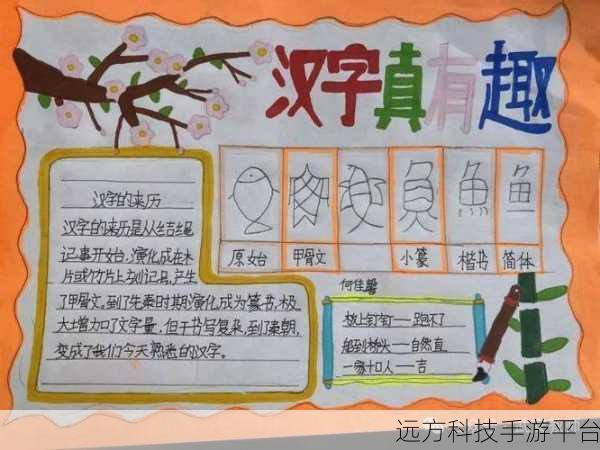 汉字真有趣
汉字的来历
汉字的来历是从结绳
记事开始,演化成在木
片或竹片上刻记号,产生
了甲骨文。到了先秦时期演化成为篆书,极
大增加了文字量,但于书写复杂,到了秦朝,
变成了我们今天熟悉的汉字。
魚 鱼
原始 甲骨文 小篆 楷书 简体
何佳
板上钉钉——跑不了
船到桥头——自然直
一家十口人——吉
远方科技手游平台